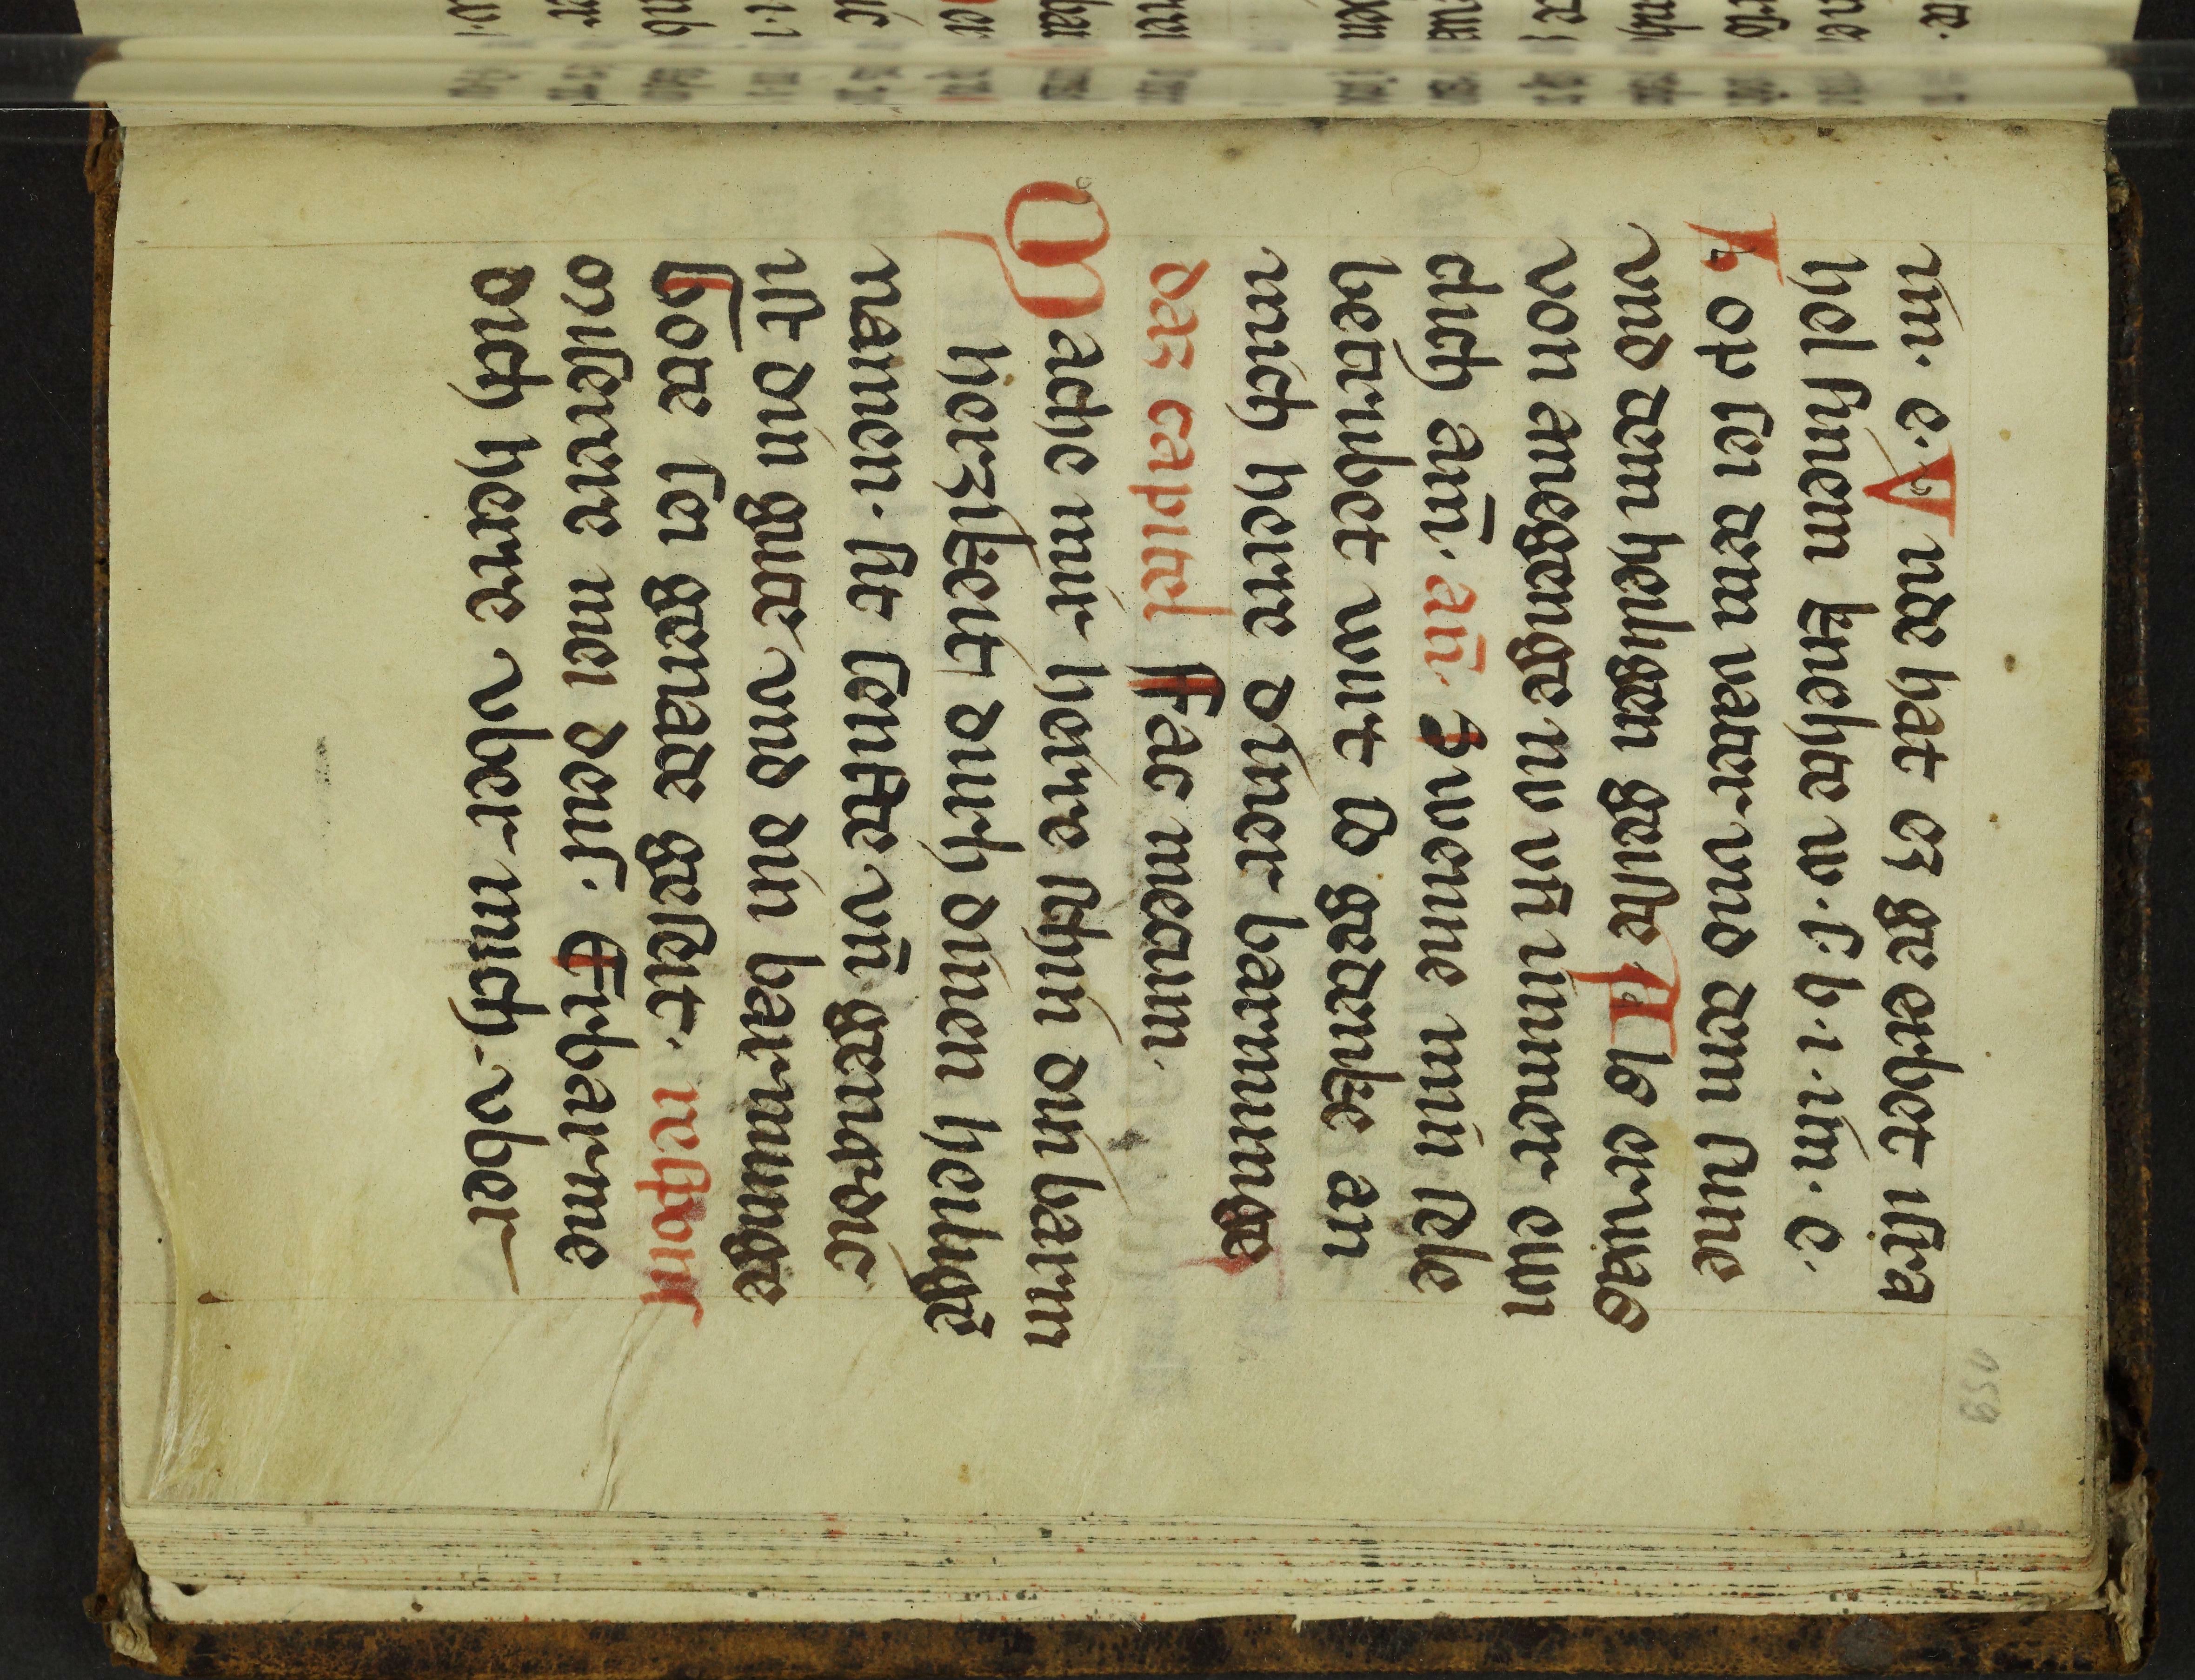 im. e. Vnde hat ez ge erbet isra
hel sinem knehte w. s. b. i. im. e.
Lop sei dem vater vnd dem sune
vnd dem heiligen geiste Als er waz
von anegenge nu vn̄ immer ewi
clich am̄. an̄. Swenne min sele
betrubet wirt so gedenke an
mich herre diner barmmunge
daz capitel Fac mecum.
Mache mir herre schin din barm
herzikeit durch dinen heiligē
namen. sit senfte vn̄ genedic
ist din gute vnd din barmmunge
Gote sei genade geseit. respons
Miserere mei deus. Erbarme
dich herre vber mich. vber